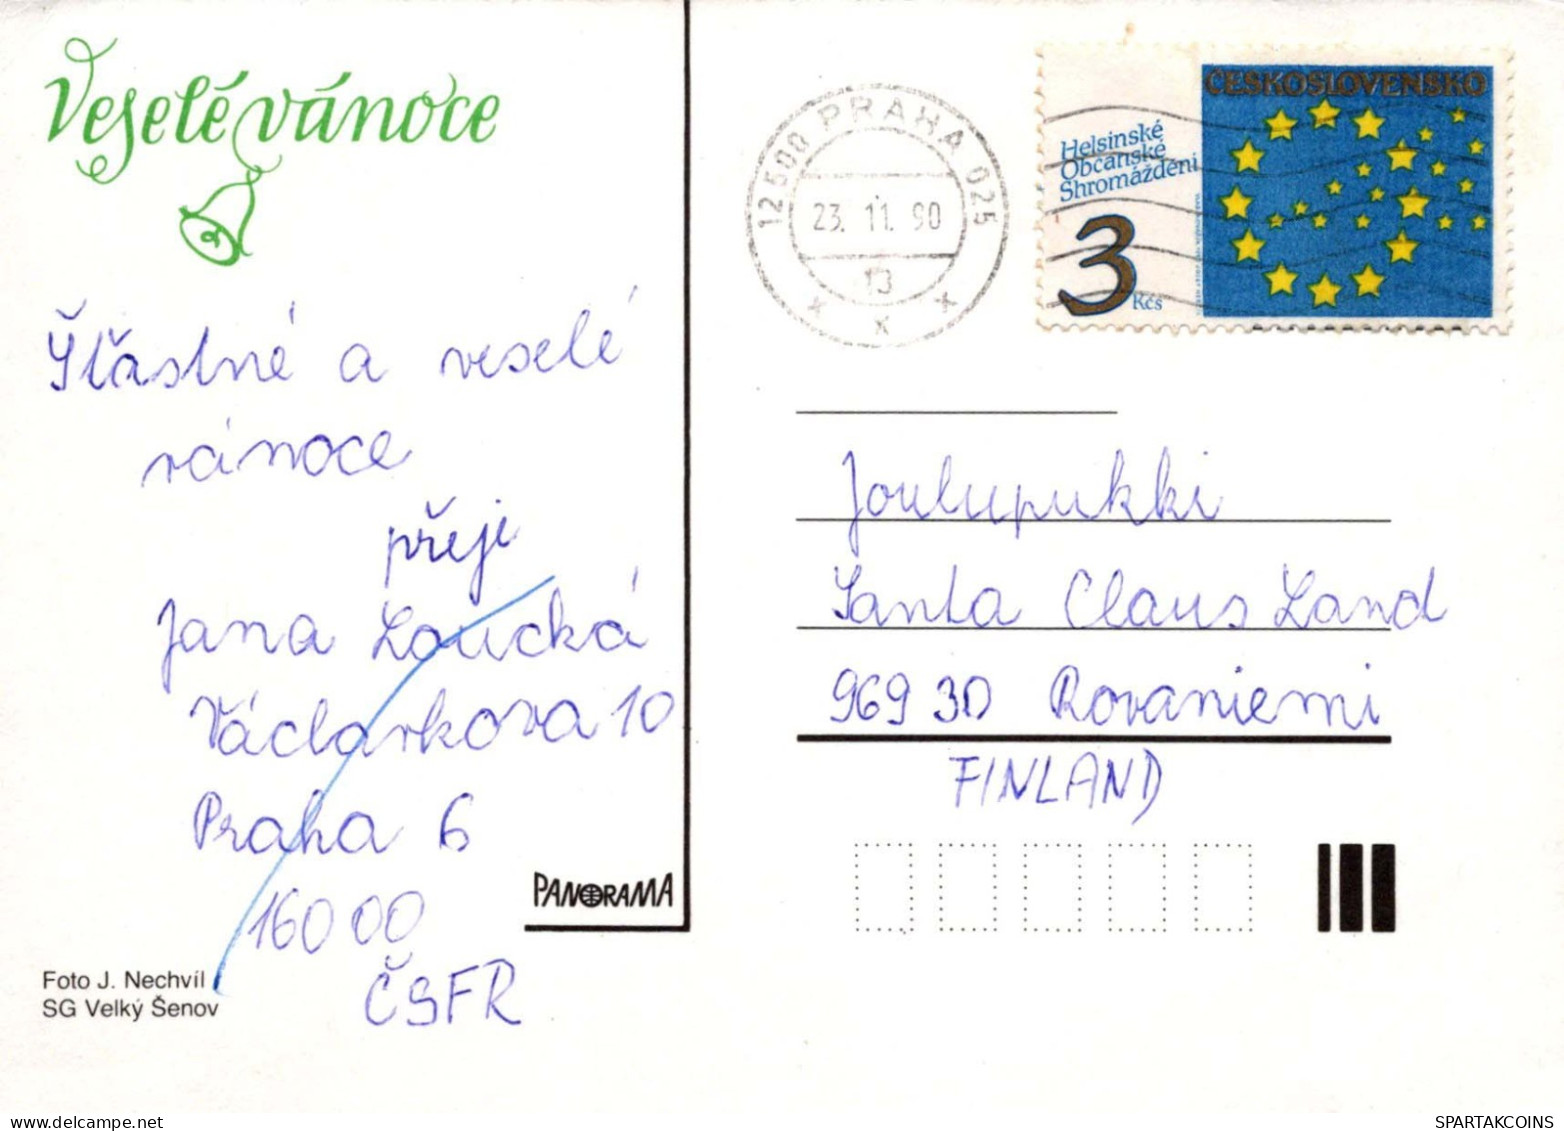 Veselé vánoce
Šťastné a veselé
vánoce
přeji
Jana Loucká
Václavkova 10
Praha 6
160 00
ČSFR
PANORAMA
Foto J. Nechvíl
SG Velký Šenov
12500 PRAHA 025
23. 11. 90
x x x
ČESKOSLOVENSKO
Helsinské
Občanské
Shromáždění
3 Kčs
Joulupukki
Santa Claus Land
969 30 Rovaniemi
FINLAND
SPARTAKCOINS